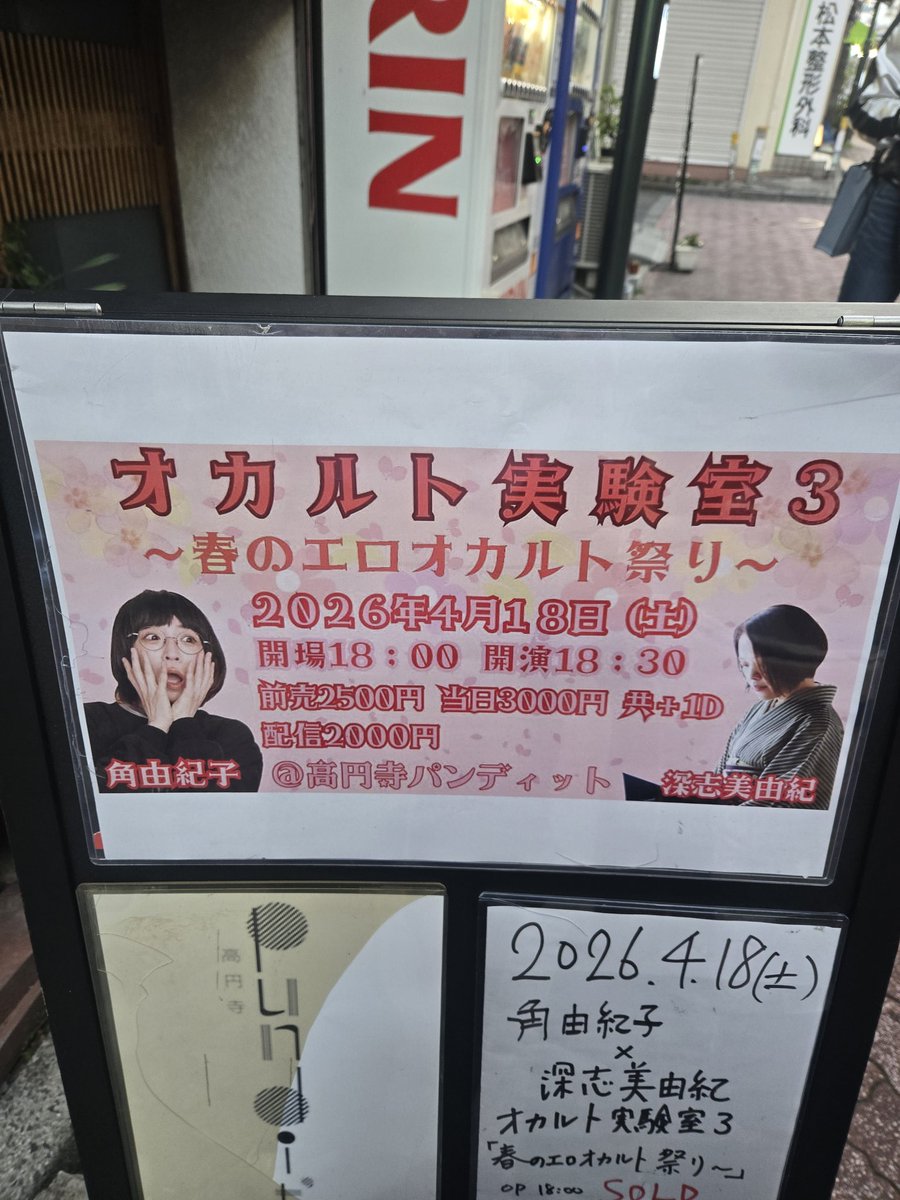 RIN
松本整形外科
オカルト実験室3
～春のエロオカルト祭り～
2026年4月18日（土）
開場18：00 開演18：30
前売2500円 当日3000円 共+1D
配信2000円
角由紀子
@高円寺パンディット
深志美由紀
高円寺
pundi
2026.4.18(土)
角由紀子
×
深志美由紀
オカルト実験室3
「春のエロオカルト祭り～」
OP 18:00 SOLD